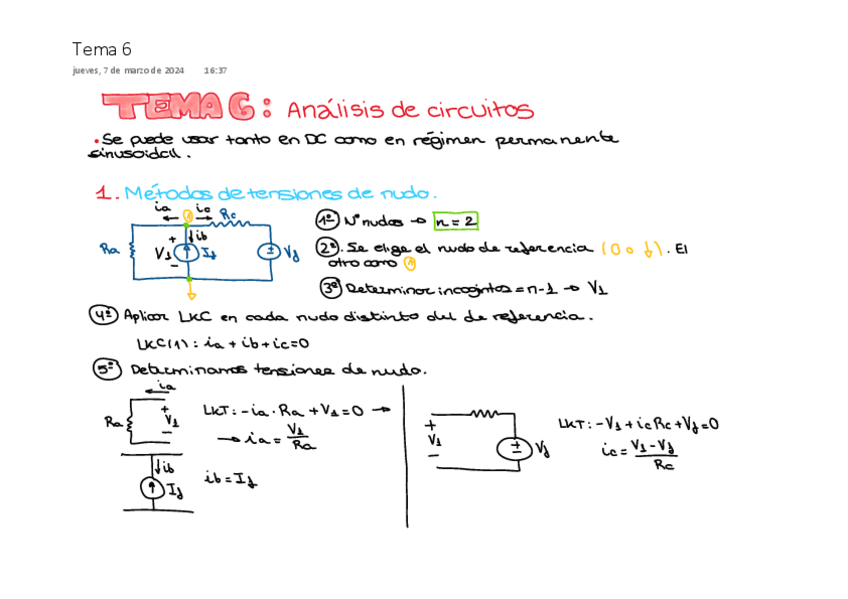 Tema 6
jueves, 7 de marzo de 2024 16:37
TEMA 6: Análisis de circuitos
• Se puede usar tanto en DC como en régimen permanente
sinusoidal.
1. Métodos de tensiones de nudo.
ia ic Rc
1º Nº nudos → n = 2
ib
Ra + V1 - Ig Vg
2º. Se elige el nudo de referencia (0 o ↓). El
otro como 1
3º Determinar incognitas = n-1 → V1
4º Aplicar LKC en cada nudo distinto del de referencia.
LKC(1): ia + ib + ic = 0
5º Determinamos tensiones de nudo.
ia
Ra + V1 -
LKT: -ia · Ra + V1 = 0 →
→ ia = V1/Ra
ib
Ig
ib = Ig
+ V1 - Vg
LKT: -V1 + icRc + Vg = 0
ic = V1 - Vg / Rc